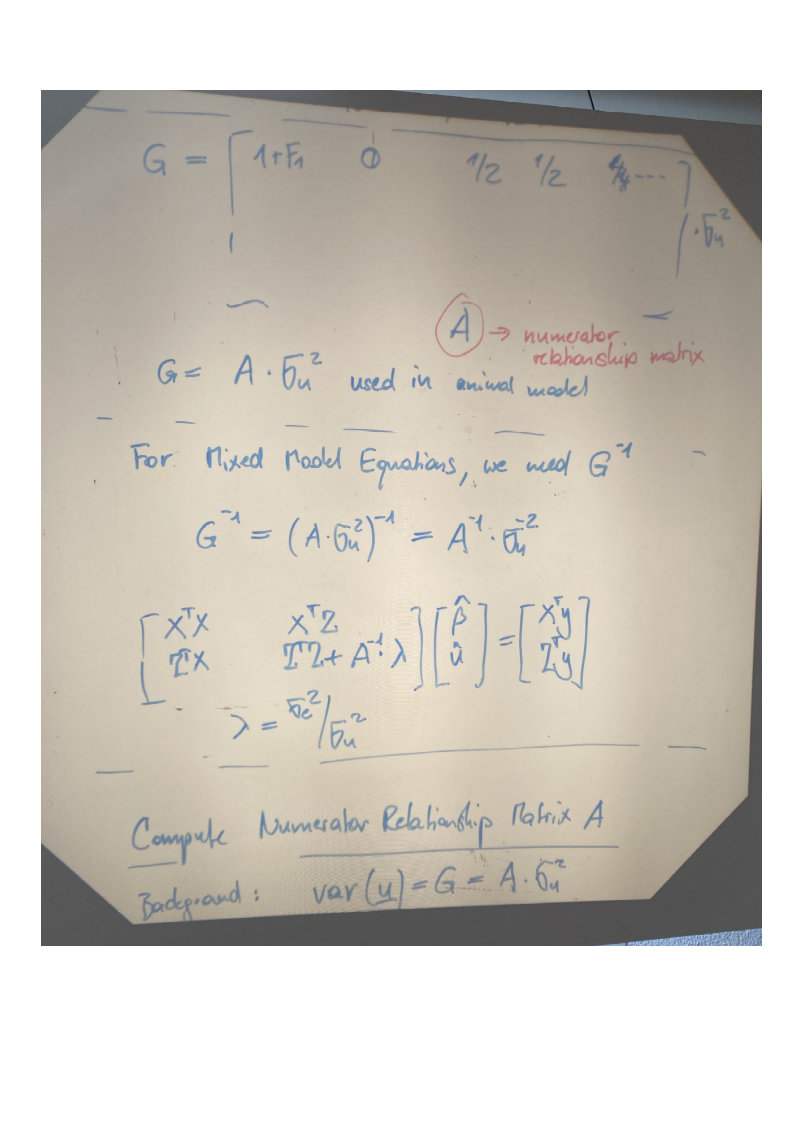 G = [ 1+F₁ 0 1/2 1/2 ---- ] · σᵤ²
A → numerator
relationship matrix
G = A · σᵤ² used in animal model
For Mixed Model Equations, we need G⁻¹
G⁻¹ = (A·σᵤ²)⁻¹ = A⁻¹ · σᵤ⁻²
[ XᵀX XᵀZ ] [ β̂ ] = [ Xᵀy ]
[ ZᵀX ZᵀZ + A⁻¹·λ ] [ û ] [ Zᵀy ]
λ = σₑ² / σᵤ²
Compute Numerator Relationship Matrix A
Background: var(u) = G = A · σᵤ²